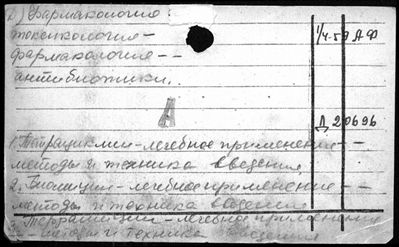 2) Фармакология:
токсикология —
фармакология — —
антибиотики.
1/4-59 А Ф
А
Д 20696
1. Тетрациклин - лечебное применение —
методы и техника введения
2. Биомицин - лечебное применение — —
методы и техника введения
3. Террамицин - лечебное применение
— методы и техника введения